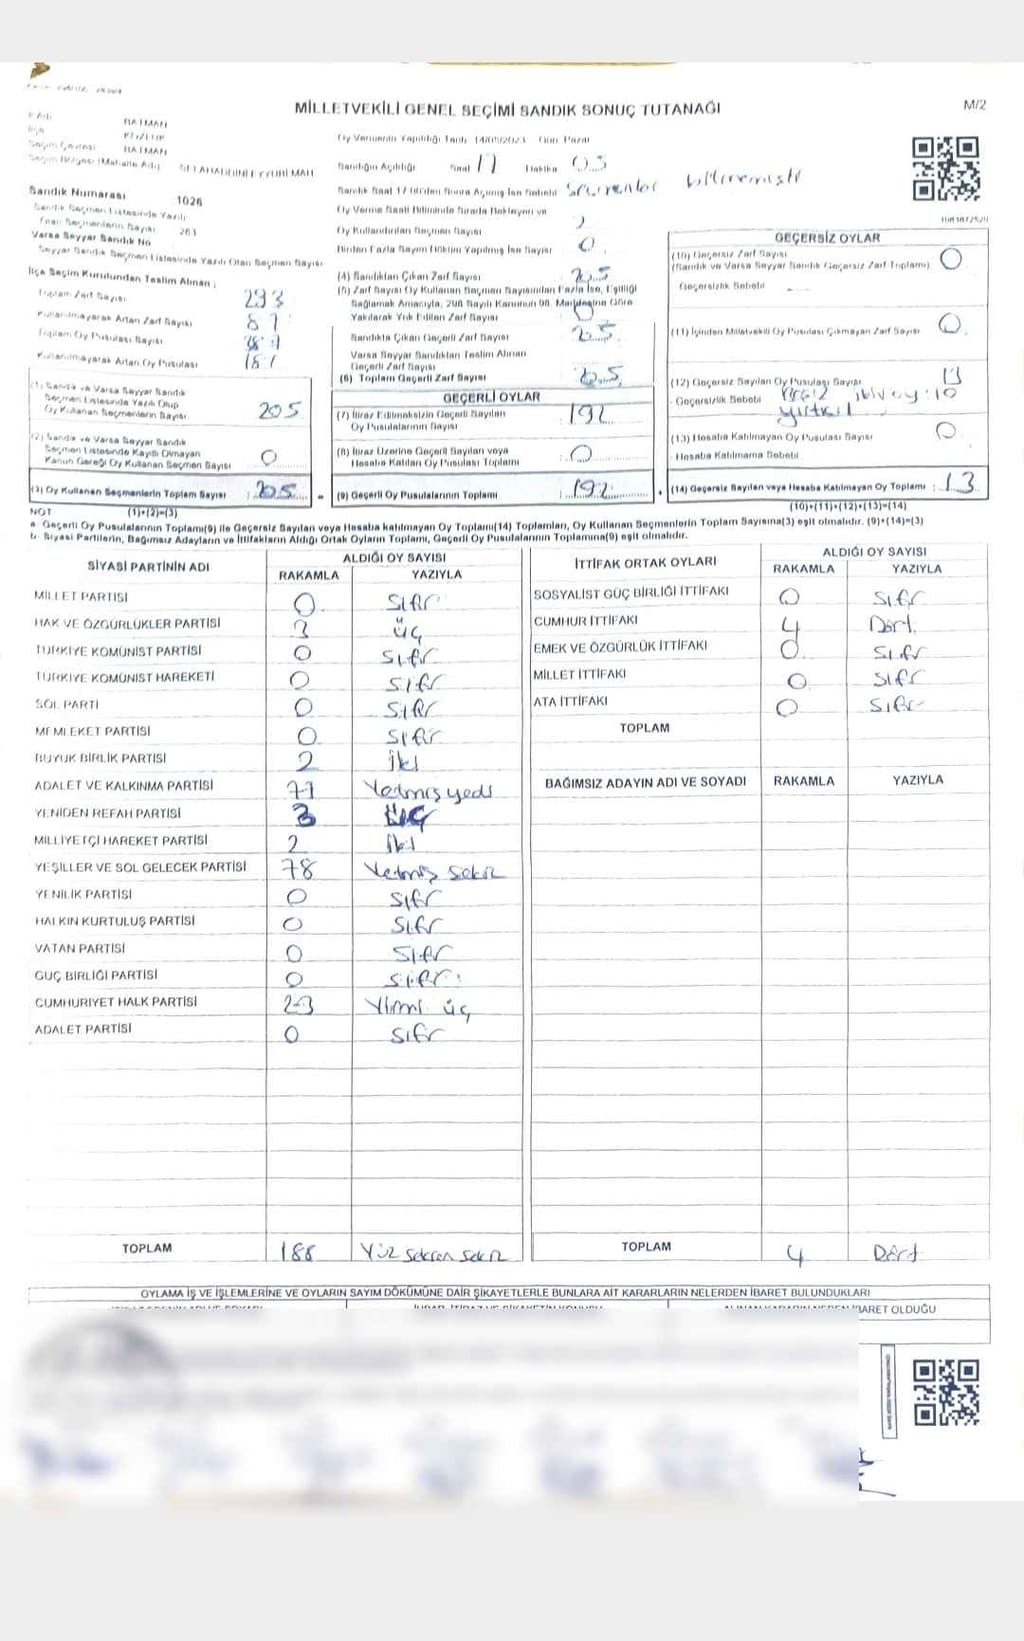 MİLLETVEKİLİ GENEL SEÇİMİ SANDIK SONUÇ TUTANAĞI
M/2
BATMAN
KOZLUK
BATMAN
Seçim Bölgesi (Mahalle Adı) SELAHADDİNİ EYYUBİ MAH.
Sandık Numarası 1026
Sandık Seçmen Listesinde Yazılı
Olan Seçmenlerin Sayısı 263
Varsa Seyyar Sandık No
Seyyar Sandık Seçmen Listesinde Yazılı Olan Seçmen Sayısı
İlçe Seçim Kurulundan Teslim Alınan ;
Toplam Zarf Sayısı 293
Kullanılmayarak Artan Zarf Sayısı
Toplam Oy Pusulası Sayısı
Kullanılmayarak Artan Oy Pusulası
(1) Sandık ve Varsa Seyyar Sandık
Seçmen Listesinde Yazılı Olup
Oy Kullanan Seçmenlerin Sayısı 205
(2) Sandık ve Varsa Seyyar Sandık
Seçmen Listesinde Kayıtlı Olmayan
Kanun Gereği Oy Kullanan Seçmen Sayısı 0
(3) Oy Kullanan Seçmenlerin Toplam Sayısı : 205 =
Oy Vermenin Yapıldığı Tarih 14/05/2023 Gün Pazar
Sandığın Açıldığı Saat 17 Dakika 05
Sandık Saat 17.00'den Sonra Açılmış İse Sebebi Seçmenler
Oy Verme Saati Bitiminde Sırada Bekleyen ve
Oy Kullandırılan Seçmen Sayısı
Birden Fazla Sayım Döküm Yapılmış İse Sayısı 0
(4) Sandıktan Çıkan Zarf Sayısı 205
(5) Zarf Sayısı Oy Kullanan Seçmen Sayısından Fazla İse, Eşitliği
Sağlamak Amacıyla, 298 Sayılı Kanunun 98. Maddesine Göre
Yakılarak Yok Edilen Zarf Sayısı 0
Sandıkta Çıkan Geçerli Zarf Sayısı 205
Varsa Seyyar Sandıktan Teslim Alınan
Geçerli Zarf Sayısı
(6) Toplam Geçerli Zarf Sayısı 205
GEÇERLİ OYLAR
(7) İtiraz Edilmeksizin Geçerli Sayılan
Oy Pusulalarının Sayısı 192
(8) İtiraz Üzerine Geçerli Sayılan veya
Hesaba Katılan Oy Pusulası Toplamı : 0
(9) Geçerli Oy Pusulalarının Toplamı : 192 +
GEÇERSİZ OYLAR
(10) Geçersiz Zarf Sayısı
(Sandık ve Varsa Seyyar Sandık Geçersiz Zarf Toplamı) 0
Geçersizlik Sebebi
(11) İçinden Milletvekili Oy Pusulası Çıkmayan Zarf Sayısı 0
(12) Geçersiz Sayılan Oy Pusulası Sayısı 13
- Geçersizlik Sebebi
(13) Hesaba Katılmayan Oy Pusulası Sayısı 0
- Hesaba Katılmama Sebebi
(14) Geçersiz Sayılan veya Hesaba Katılmayan Oy Toplamı : 13
NOT (1)+(2)=(3) (10)+(11)+(12)+(13)=(14)
a- Geçerli Oy Pusulalarının Toplamı(9) ile Geçersiz Sayılan veya Hesaba katılmayan Oy Toplamı(14) Toplamları, Oy Kullanan Seçmenlerin Toplam Sayısına(3) eşit olmalıdır. (9)+(14)=(3)
b- Siyasi Partilerin, Bağımsız Adayların ve İttifakların Aldığı Ortak Oyların Toplamı, Geçerli Oy Pusulalarının Toplamına(9) eşit olmalıdır.
SİYASİ PARTİNİN ADI ALDIĞI OY SAYISI
RAKAMLA YAZIYLA
MİLLET PARTİSİ 0 Sıfır
HAK VE ÖZGÜRLÜKLER PARTİSİ 3 üç
TÜRKİYE KOMÜNİST PARTİSİ 0 Sıfır
TÜRKİYE KOMÜNİST HAREKETİ 0 Sıfır
SOL PARTİ 0 Sıfır
MEMLEKET PARTİSİ 0 Sıfır
BÜYÜK BİRLİK PARTİSİ 2 İki
ADALET VE KALKINMA PARTİSİ 77 Yetmiş yedi
YENİDEN REFAH PARTİSİ 3 ÜÇ
MİLLİYETÇİ HAREKET PARTİSİ 2 İki
YEŞİLLER VE SOL GELECEK PARTİSİ 78 Yetmiş sekiz
YENİLİK PARTİSİ 0 Sıfır
HALKIN KURTULUŞ PARTİSİ 0 Sıfır
VATAN PARTİSİ 0 Sıfır
GÜÇ BİRLİĞİ PARTİSİ 0 Sıfır
CUMHURİYET HALK PARTİSİ 23 Yirmi üç
ADALET PARTİSİ 0 Sıfır
TOPLAM 188 Yüz seksen sekiz
İTTİFAK ORTAK OYLARI ALDIĞI OY SAYISI
RAKAMLA YAZIYLA
SOSYALİST GÜÇ BİRLİĞİ İTTİFAKI 0 Sıfır
CUMHUR İTTİFAKI 4 Dört
EMEK VE ÖZGÜRLÜK İTTİFAKI 0 Sıfır
MİLLET İTTİFAKI 0 Sıfır
ATA İTTİFAKI 0 Sıfır
TOPLAM
BAĞIMSIZ ADAYIN ADI VE SOYADI RAKAMLA YAZIYLA
TOPLAM 4 Dört
OYLAMA İŞ VE İŞLEMLERİNE VE OYLARIN SAYIM DÖKÜMÜNE DAİR ŞİKAYETLERLE BUNLARA AİT KARARLARIN NELERDEN İBARET BULUNDUKLARI
İBARET OLDUĞU